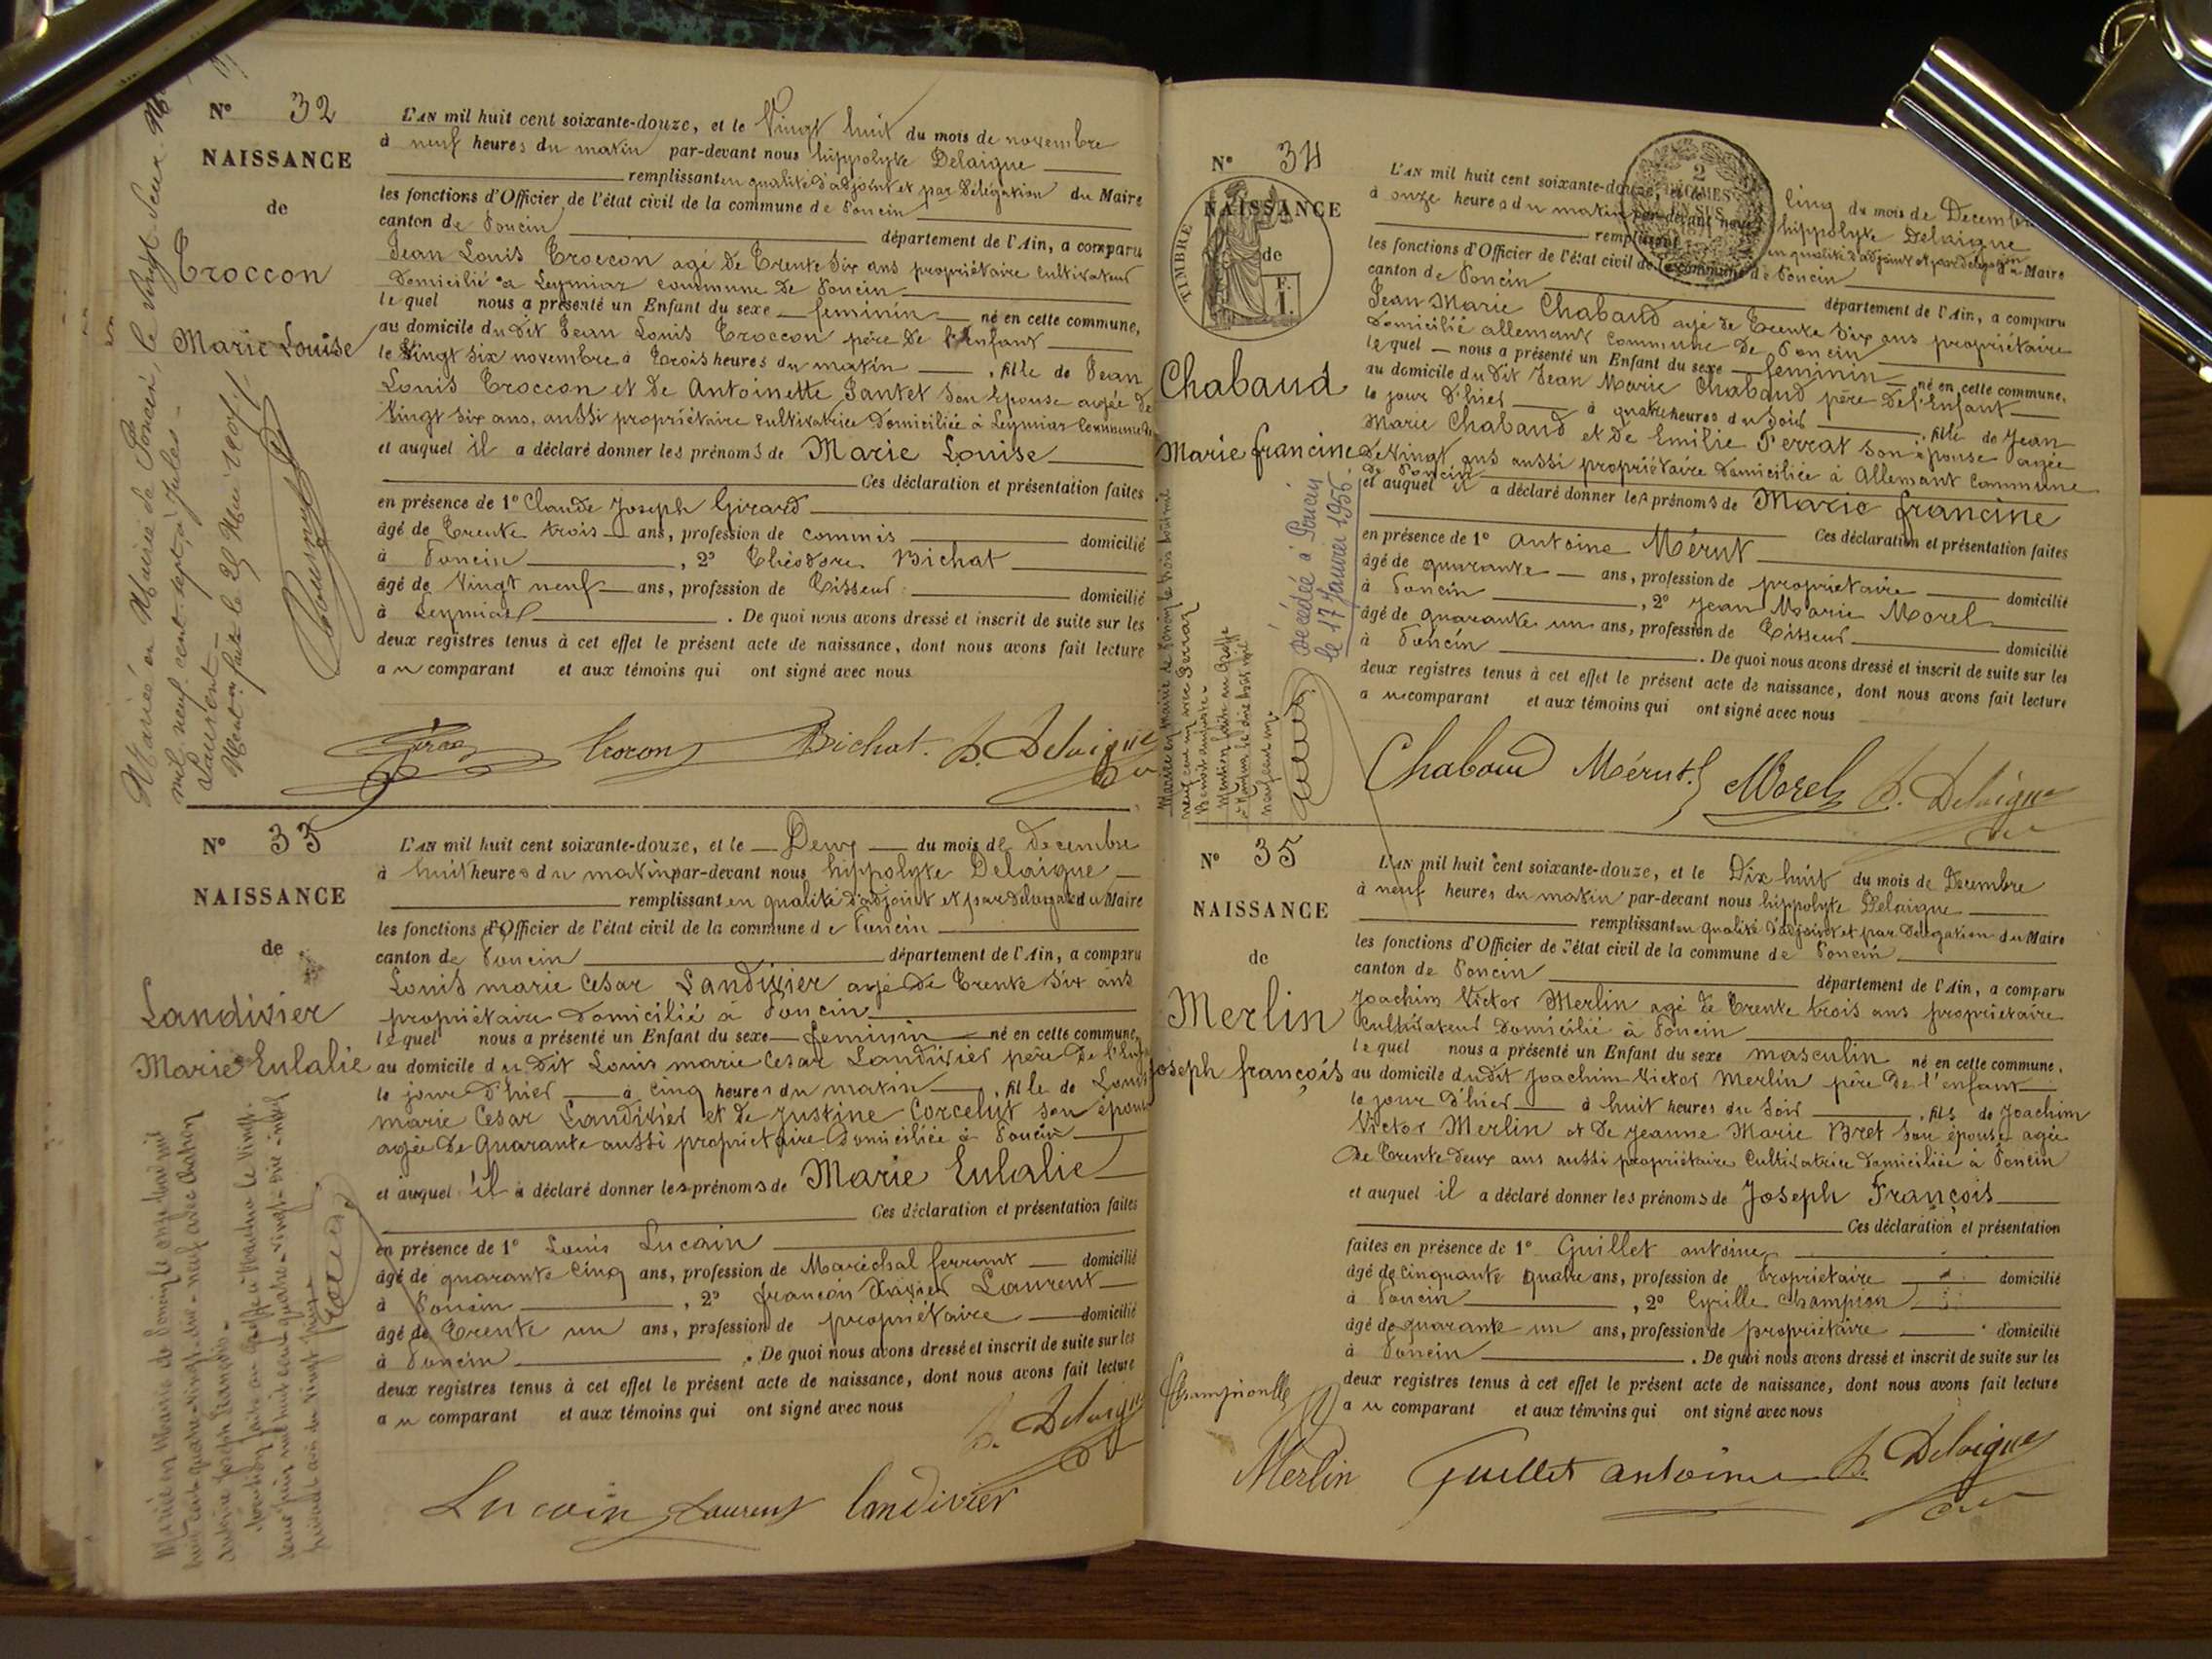 N° 32
NAISSANCE
de
Troccon
Marie Louise
L'AN mil huit cent soixante-douze, et le Vingt huit du mois de novembre
à neuf heures du matin par-devant nous hippolyte Delaigue
remplissant en qualité d'adjoint et par délégation du Maire
les fonctions d'Officier de l'état civil de la commune de Poncin
canton de Poncin département de l'Ain, a comparu
Jean Louis Troccon agé de Trente Six ans propriétaire cultivateur
Domicilié à Leymiar commune de Poncin
lequel nous a présenté un Enfant du sexe feminin né en cette commune,
au domicile du dit Jean Louis Troccon père de l'enfant
le Vingt six novembre à Trois heures du matin , fille de Jean
Louis Troccon et de Antoinette Jantet son épouse agée de
Vingt six ans, aussi propriétaire cultivatrice Domiciliée à Leymiar Commune
et auquel il a déclaré donner les prénoms de Marie Louise
Ces déclaration et présentation faites
en présence de 1° Claude Joseph Girard
âgé de Trente trois ans, profession de commis domicilié
à Poncin , 2° Théodore Bichat
âgé de Vingt neuf ans, profession de Tisseur domicilié
à Leymiar . De quoi nous avons dressé et inscrit de suite sur les
deux registres tenus à cet effet le présent acte de naissance, dont nous avons fait lecture
au comparant et aux témoins qui ont signé avec nous
Bichat. h. Delaigue
Marié en Mairie de Poncin, le vingt deux
mil neuf cent sept, à Jules
Laurent
N° 33
NAISSANCE
de
Landivier
Marie Eulalie
L'AN mil huit cent soixante-douze, et le Deux du mois de Decembre
à huit heures du matin par-devant nous hippolyte Delaigue
remplissant en qualité d'adjoint et par délégation du Maire
les fonctions d'Officier de l'état civil de la commune de Poncin
canton de Poncin département de l'Ain, a comparu
Louis marie Cesar Landivier agé de Trente Six ans
propriétaire domicilié à Poncin
lequel nous a présenté un Enfant du sexe feminin né en cette commune,
au domicile du dit Louis marie Cesar Landivier père de l'Enfant
le jour d'hier à cinq heures du matin , fille de Louis
marie Cesar Landivier et de Justine Corcelut son épouse
agée de Quarante aussi propriétaire Domiciliée à Poncin
et auquel il a déclaré donner les prénoms de Marie Eulalie
Ces déclaration et présentation faites
en présence de 1° Louis Lucain
âgé de quarante Cinq ans, profession de Maréchal ferrant domicilié
à Poncin , 2° françois Xavier Laurent
âgé de Trente un ans, profession de propriétaire domicilié
à Poncin . De quoi nous avons dressé et inscrit de suite sur les
deux registres tenus à cet effet le présent acte de naissance, dont nous avons fait lecture
au comparant et aux témoins qui ont signé avec nous
h. Delaigue
Lucain Laurent landivier
N° 34
NAISSANCE
de
TIMBRE
Chabaud
Marie francine
2
DÉCIMES
EN SUS
L'AN mil huit cent soixante-douze, et le Cinq du mois de Decembre
à onze heures du matin par-devant nous hippolyte Delaigue
remplissant en qualité d'adjoint et par délégation du Maire
les fonctions d'Officier de l'état civil de la commune de Poncin
canton de Poncin département de l'Ain, a comparu
Jean Marie Chabaud agé de Trente Six ans propriétaire
domicilié allemant Commune de Poncin
lequel nous a présenté un Enfant du sexe feminin né en cette commune,
au domicile du dit Jean Marie Chabaud père de l'Enfant
le jour d'hier à quatre heures du Soir , fille de Jean
Marie Chabaud et de Emilie Perrat son épouse agée
de Vingt ans aussi propriétaire Domiciliée à Allemant Commune
de Poncin
et auquel il a déclaré donner les prénoms de Marie francine
Ces déclaration et présentation faites
en présence de 1° Antoine Mérut
âgé de quarante ans, profession de propriétaire domicilié
à Poncin , 2° Jean Marie Morel
âgé de quarante un ans, profession de Tisseur domicilié
à Poncin . De quoi nous avons dressé et inscrit de suite sur les
deux registres tenus à cet effet le présent acte de naissance, dont nous avons fait lecture
au comparant et aux témoins qui ont signé avec nous
Chaboud Mérut Morel h. Delaigue
Décédée à Poncin
le 17 Janvier 1956
N° 35
NAISSANCE
de
Merlin
Joseph françois
L'AN mil huit cent soixante-douze, et le Dix huit du mois de Decembre
à neuf heures du matin par-devant nous hippolyte Delaigue
remplissant en qualité d'adjoint et par délégation du Maire
les fonctions d'Officier de l'état civil de la commune de Poncin
canton de Poncin département de l'Ain, a comparu
Joachim Victor Merlin agé de Trente trois ans propriétaire
Cultivateur Domicilié à Poncin
lequel nous a présenté un Enfant du sexe masculin né en cette commune,
au domicile du dit Joachim Victor Merlin père de l'enfant
le jour d'hier à huit heures du Soir , fils de Joachim
Victor Merlin et de Jeanne Marie Bret son épouse agée
de Trente deux ans aussi propriétaire Cultivatrice Domiciliée à Poncin
et auquel il a déclaré donner les prénoms de Joseph François
Ces déclaration et présentation
faites en présence de 1° Guillet antoine
âgé de Cinquante quatre ans, profession de Propriétaire domicilié
à Poncin , 2° Cyrille Champion
âgé de quarante un ans, profession de propriétaire domicilié
à Poncin . De quoi nous avons dressé et inscrit de suite sur les
deux registres tenus à cet effet le présent acte de naissance, dont nous avons fait lecture
au comparant et aux témoins qui ont signé avec nous
Merlin Guillet antoine h. Delaigue